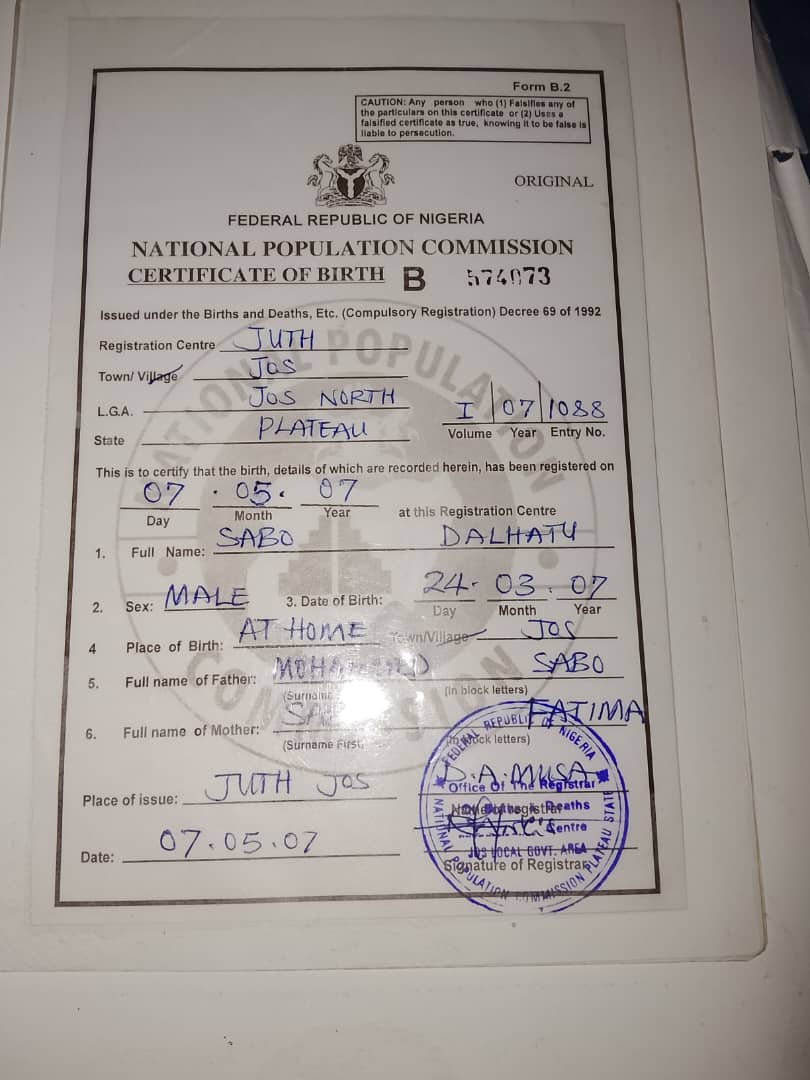 Form B.2
CAUTION: Any person who (1) Falsifies any of
the particulars on this certificate or (2) Uses a
falsified certificate as true, knowing it to be false is
liable to persecution.
ORIGINAL
FEDERAL REPUBLIC OF NIGERIA
NATIONAL POPULATION COMMISSION
CERTIFICATE OF BIRTH B 574073
Issued under the Births and Deaths, Etc. (Compulsory Registration) Decree 69 of 1992
Registration Centre JUTH
Town/ Village Jos
L.G.A. Jos NORTH
State PLATEAU
I 07 1088
Volume Year Entry No.
This is to certify that the birth, details of which are recorded herein, has been registered on
07 . 05 . 07
Day Month Year at this Registration Centre
1. Full Name: SABO DALHATU
2. Sex: MALE 3. Date of Birth: 24 . 03 . 07
Day Month Year
4 Place of Birth: AT HOME Town/Village JOS
5. Full name of Father: MOHAMMED SABO
(Surname (In block letters)
6. Full name of Mother: FATIMA
(Surname First, (In block letters)
Place of issue: JUTH JOS
D.A. MUSA
Name of Registrar
Date: 07.05.07
Signature of Registrar
FEDERAL REPUBLIC OF NIGERIA
Office Of The Registrar
Births & Deaths
Centre
JOS LOCAL GOVT. AREA
NATIONAL POPULATION COMMISSION PLATEAU STATE
NATIONAL POPULATION COMMISSION